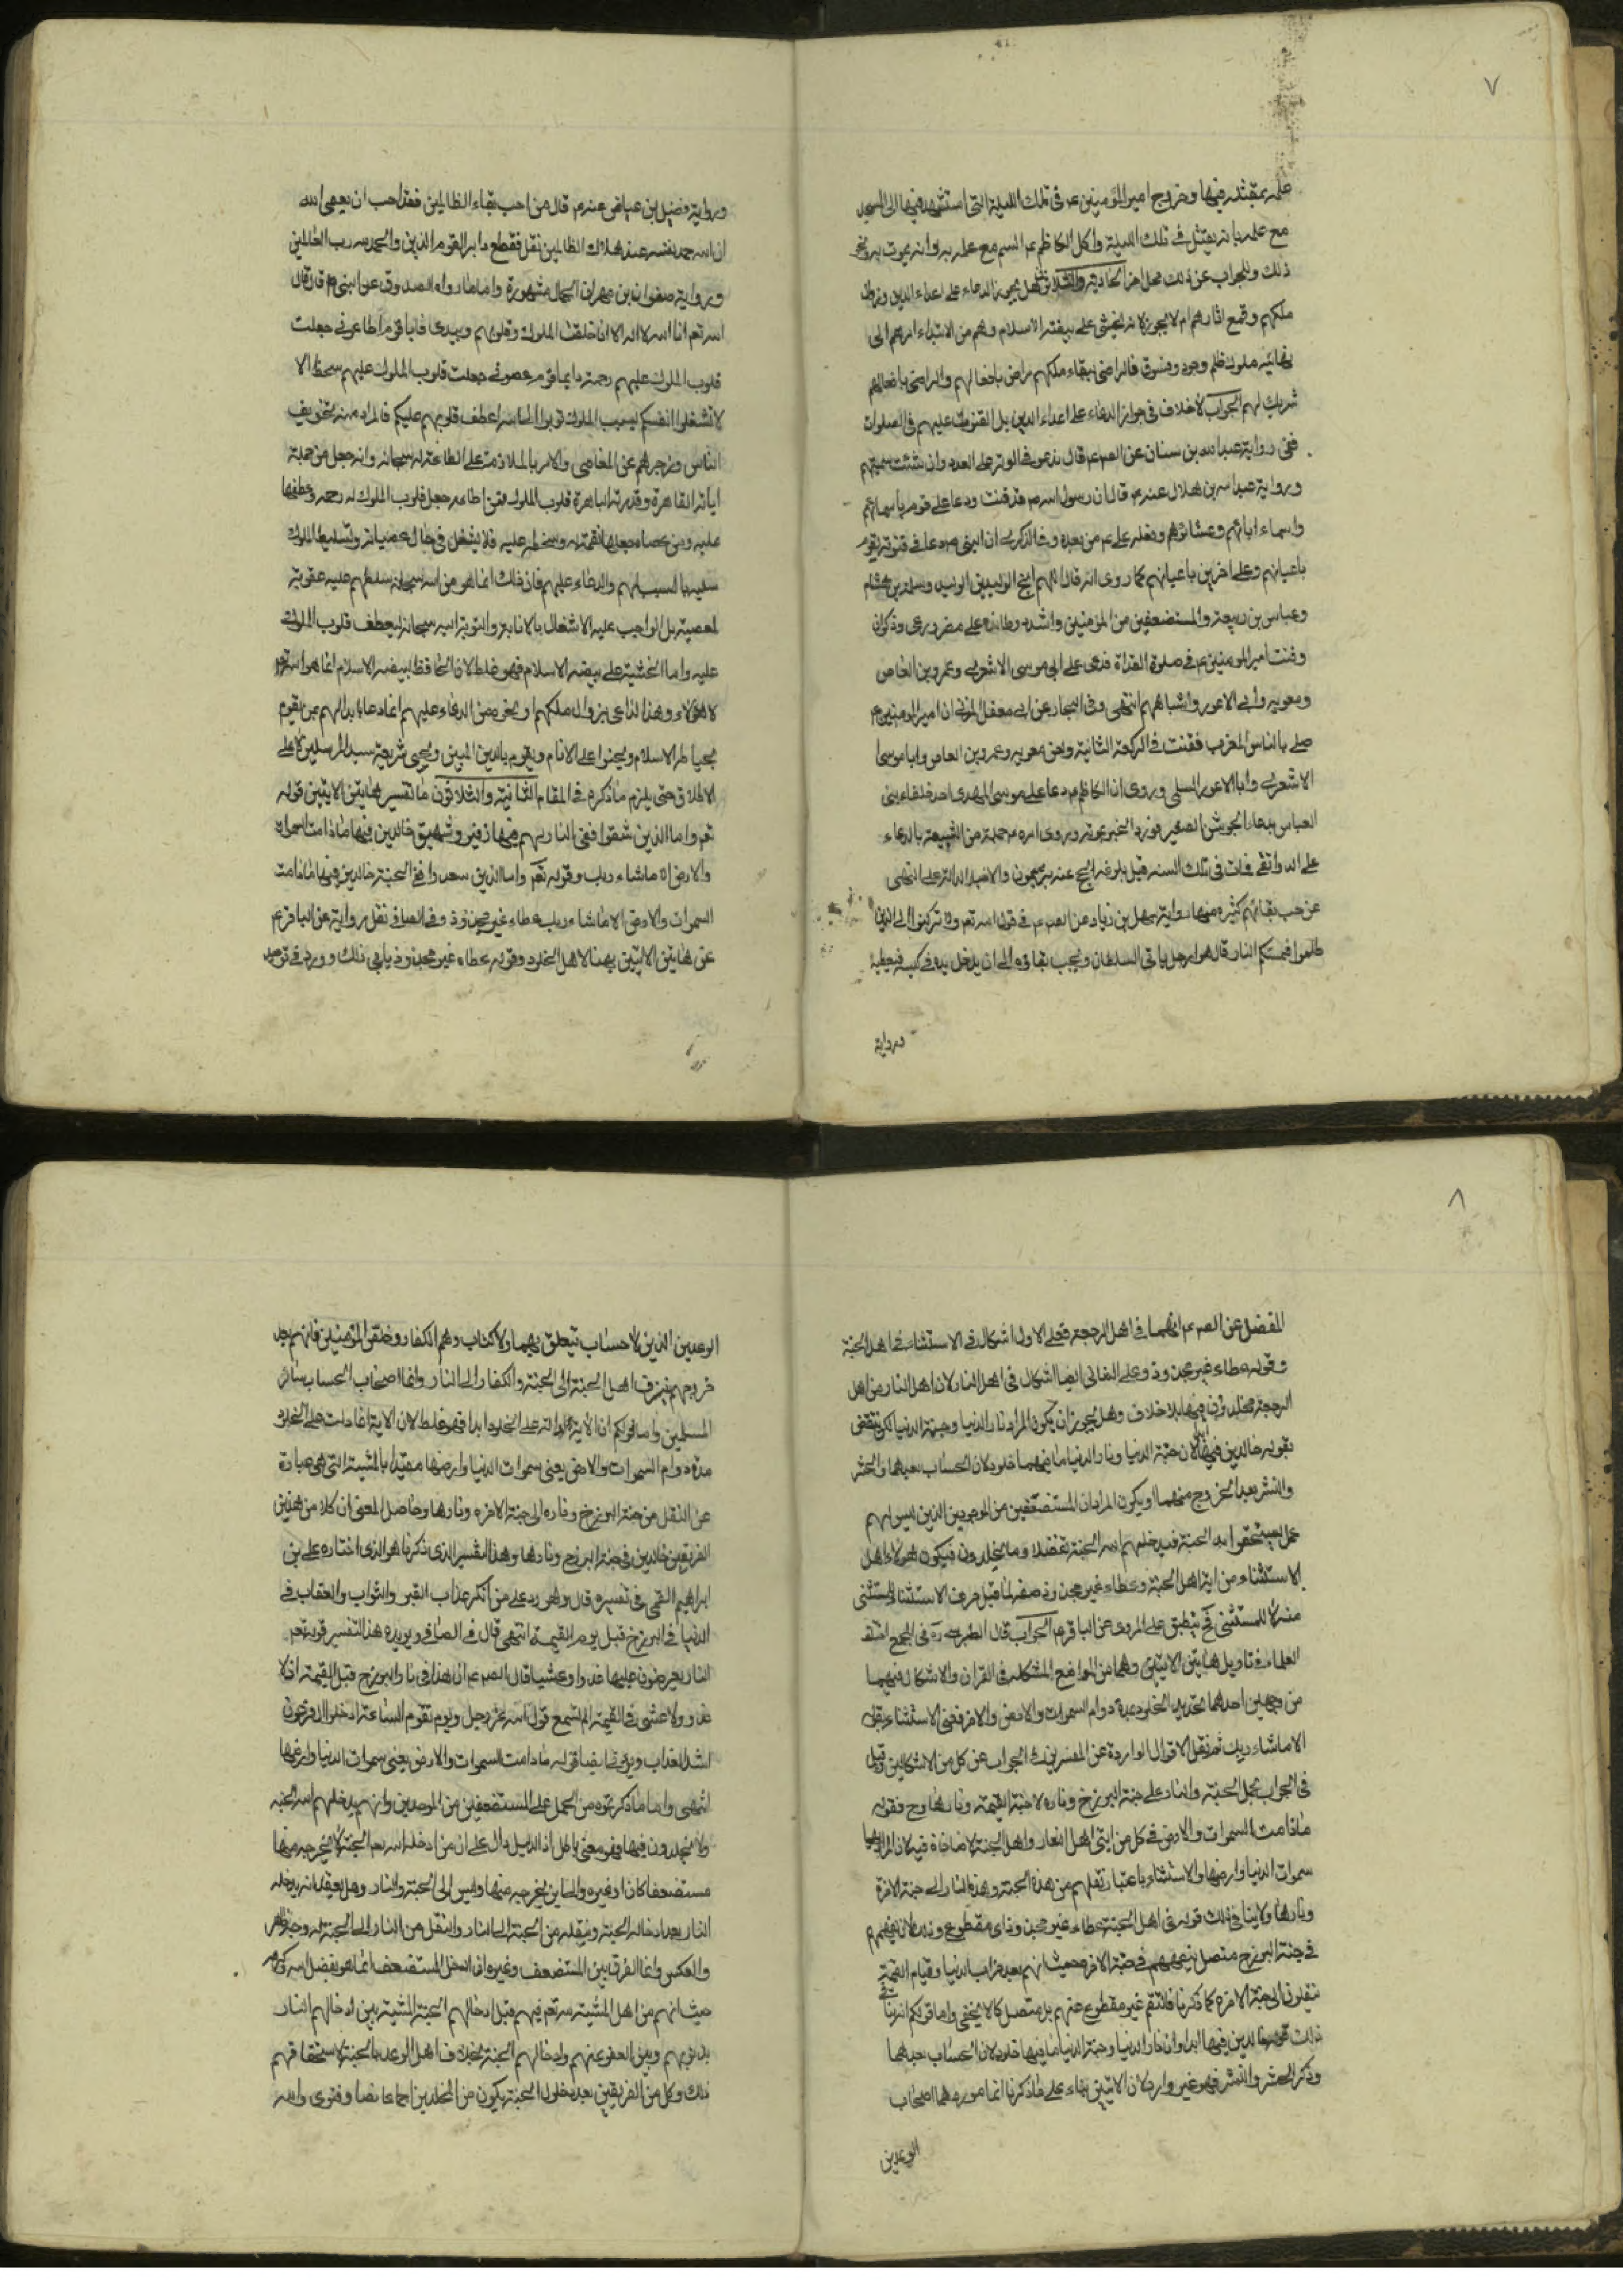 ٧
علمه بمقتله فيها وخروج امير المؤمنين ع في تلك الليلة التي استشهد فيها الى المسجد
مع علمه بانه يقتل في تلك الليلة واكل الكاظم ع السم مع علمه به وانه يموت به ونحو
ذلك والجواب عن ذلك محل اخر الحادية والثلاثون هل يجوز الدعاء على اعداء الدين وزوال
ملكهم وقمع اثارهم ام لا يجوز لانه يخشى على بيضة الاسلام وهم من الابتداء امرهم الى
نهايته ملوك ظلم وجور وفسوق فالراضي ببقاء ملكهم راض بافعالهم والراضي بافعالهم
شريك لهم الجواب لا خلاف في جواز الدعاء على اعداء الدين بل القنوت عليهم في الصلوات
ففي رواية عبد الله بن سنان عن الصم ع قال تدعو في الوتر على العدو وان شئت سميتهم
ورواية عبد الله بن هلال عنه ع قال ان رسول الله ص قد قنت ودعا على قوم باسمائهم
واسماء ابائهم وعشائرهم وفعله علي ع من بعده وفي الذكرى ان النبي ص دعا في قنوته لقوم
باعيانهم وعلى اخرين باعيانهم كما روي انه قال اللهم انج الوليد بن الوليد وسلمة بن هشام
وعباس بن ربيعة والمستضعفين من المؤمنين واشدد وطاتك على مضر ورعل وذكوان
وقنت امير المومنين ع في صلوة الغداة فدعى على ابي موسى الاشعري وعمرو بن العاص
ومعويه وابي الاعور واشباههم انتهى وفي البحار عن ابي معقل المزني ان امير المومنين ع
صلى بالناس المغرب فقنت في الركعة الثانية ولعن معويه وعمرو بن العاص وابا موسى
الاشعري وابا الاعور السلمي وروي ان الكاظم ع دعا على موسى المهدى احد خلفاء بنى
العباس بدعاء الجوشن الصغير فورد الخبر بموته وروى امره ع جملة من الشيعة بالدعاء
على فمات في تلك السنه قبل بلوغ الحج والاخبار الدالة على النهي
عن حب بقائهم كثيره منها رواية سهل بن زياد عن الصم ع في قول الله تعم ولا تركنوا الى الذين
ظلموا فتمسكم النار قال هو الرجل ياتي السلطان ويحب بقاؤه الى ان يدخل يده في كيسه فيعطيه
ورواية
ورواية فضيل بن عياض عنه ع قال من احب بقاء الظالمين فقد احب ان يعصى الله
ان الله حمد نفسه عند هلاك الظالمين فقال فقطع دابر القوم الذين والحمد لله رب العالمين
ورواية صفوان بن مهران الجمال مشهورة واما ما رواه الصدوق عن النبي ص قال قال
الله تعم انا الله لا اله الا انا خلقت الملوك وقلوبهم بيدى فايما قوم اطاعونى جعلت
قلوب الملوك عليهم رحمة وايما قوم عصوني جعلت قلوب الملوك عليهم سخطا الا
لا تشغلوا انفسكم بسب الملوك توبوا الى الله اعطف قلوبهم عليكم فالمراد منه تخويف
الناس وزجرهم عن المعاصي والامر بالملازمة على الطاعة لله سبحانه وانه جعل من جملة
اياته القاهرة وقدرته الباهرة قلوب الملوك فمن اطاعه جعل قلوب الملوك له رحمة وعطفها
عليه ومن عصاه جعلها نقمة له وسخطا عليه فلا يشغل في حال عصيانه وتسليط الملوك
عليه بالسب لهم والدعاء عليهم فان ذلك انما هو من الله سبحانه سلطهم عليه عقوبة
لمعصيته بل الواجب عليه الاشغال بالانابة والتوبة اليه سبحانه ليعطف قلوب الملوك
عليه واما الخشية على بيضة الاسلام فهو غلط لان الحافظ لبيضة الاسلام انما هو الله تعم
لا هؤلاء وهذا الداعي بزوال ملكهم والدعاء عليهم انما دعا بابدالهم بمن يقوم
بحياطة الاسلام ويحنوا على الانام ويقوم بالدين المبين ويحيى شريعة سيد المرسلين لا على
الاطلاق حتى يلزم ما ذكره في المقام الثانية والثلاثون ما تفسير هاتين الايتين قوله
تعم واما الذين شقوا ففي النار لهم فيها زفير وشهيق خالدين فيها ما دامت السموات
والارض الا ما شاء ربك وقوله تعم واما الذين سعدوا ففي الجنة خالدين فيها ما دامت
السموات والارض الا ما شاء ربك عطاء غير مجذوذ وفي الصافي نقل رواية عن الباقر ع
عن هاتين الايتين بهذا لاهل الخلود وقوله عطاء غير مجذوذ يابى ذلك وورد في توحيد
٨
المفضل عن الصم ع انهما في اهل الرجعة فعلى الاول اشكال في الاستثناء في اهل الجنة
وقوله عطاء غير مجذوذ وعلى الثاني ايضا اشكال في اهل النار لان اهل النار من اهل
الرجعة مخلدون فيها بلا خلاف وهل يجوز ان يكون المراد نار الدنيا وجنة الدنيا لكن ينتقض
بقوله خالدين فيها ابدا لان جنة الدنيا ونار الدنيا ما فيهما خلود لان الحساب بعدهما والحشر
والنشر بعد الخروج منهما او يكون المراد ان المستضعفين من الموحدين الذين ليس لهم
عمل يستحقوا به الجنة فيدخلهم الله الجنة تفضلا وما يخلدون فيكون هولاء اهل
الاستثناء من اية اهل الجنة وعطاء غير مجذوذ صفه لما قبل حرف الاستثناء المستثنى
منه لا للمستثنى ينطبق على المروى عن الباقر ع الجواب قال الطبرسي ره في المجمع اختلف
العلماء في تاويل هاتين الايتين وهما من المواضع المشكله في القران والاشكال فيهما
من وجهين احدهما تحديد الخلود بمدة دوام السموات والارض والاخر في الاستثناء بقوله
الا ما شاء ربك ثم نقل الاقوال الواردة عن المفسرين في الجواب عن كل من الاشكالين وقيل
في الجواب بحمل الجنة والنار على جنة البرزخ وناره لا جنة القيمة ونارها وح فقوله
ما دامت السموات والارض في كل من ايتي اهل النار واهل الجنة لا منافاة فيه لان المراد بها
سموات الدنيا وارضها والاستثناء باعتبار نقلهم من هذه الجنة وهذه النار الى جنة الاخرة
ونارها ولا ينافي ذلك قوله في اهل الجنة عطاء غير مجذوذ اي مقطوع وذلك لان نعيمهم
في جنة البرزخ متصل بنعيمهم في جنة الاخرة حيث انهم بعد خراب الدنيا وقيام القيمة
ينقلون الى جنة الاخرة كما ذكرنا فالنعم غير مقطوع عنهم بل متصل كما لا يخفى واما قولكم انه ينافي
ذلك قوله خالدين فيها ابدا وان نار الدنيا وجنة الدنيا ما فيها خلود لان الحساب بعدهما
وذكر الحشر والنشر فهو غير وارد لان الايتين بناء على ما ذكرنا انما موردهما اصحاب
الوعدين
الوعدين الذين لا حساب يتعلق بهما ولا كتاب وهم الكفار وخلص المؤمنين فانهم بعد
خروجهم يزف اهل الجنة الى الجنة والكفار الى النار وانما اصحاب الحساب سائر
المسلمين واما قولكم ان الاية دالة على الخلود ابدا فهو غلط لان الاية انما دلت على الخلود
مدة دوام السموات والارض يعنى سموات الدنيا وارضها مقيدا بالمشية التي هي عبارة
عن النقل من جنة البرزخ وناره الى جنة الاخرة ونارها وحاصل المعنى ان كلا من هذين
الفريقين خالدين في جنة البرزخ ونارها وهذا التفسير الذى ذكرناه هو الذى اختاره على بن
ابراهيم القمى في تفسيره قال وهو رد على من انكر عذاب القبر والثواب والعقاب في
الدنيا في البرزخ قبل يوم القيمة انتهى قال في الصافي ويويده هذا التفسير قوله تعم
النار يعرضون عليها غدوا وعشيا قال الصم ع ان هذا في نار البرزخ قبل القيمة اذ لا
غدو ولا عشى في القيمة الم تسمع قول الله عز وجل ويوم تقوم الساعة ادخلوا ال فرعون
اشد العذاب وقوله ما دامت السموات والارض يعنى سموات الدنيا وارضها
انتهى واما ما ذكرتموه من الحمل على المستضعفين من الموحدين وانهم يدخلهم الله الجنة
ولا يخلدون فيها فهو معنى باطل اذ الدليل دال على ان من ادخله الله تعم الجنة لا يخرجه منها
مستضعفا كان او غيره والى اين يخرجه منها وليس الا الجنة والنار وهل يعقل انه يدخله
النار بعد ادخاله الجنة وينقله من الجنة الى النار وانتقل من النار الى الجنة له وجه ظاهر
والعكس وانما الفرق بين المستضعف وغيره ان ادخال المستضعف انما هو بفضل الله وكرمه
حيث انهم من اهل المشية لله تعم فيهم قبل ادخالهم الجنة المشية بين ادخالهم النار
بذنوبهم وبين العفو عنهم وادخالهم الجنة بخلاف اهل الوعد بالجنة لاستحقاقهم
ذلك وكل من الفريقين بعد دخول الجنة يكون من المخلدين اجماعا نصا وفتوى والله